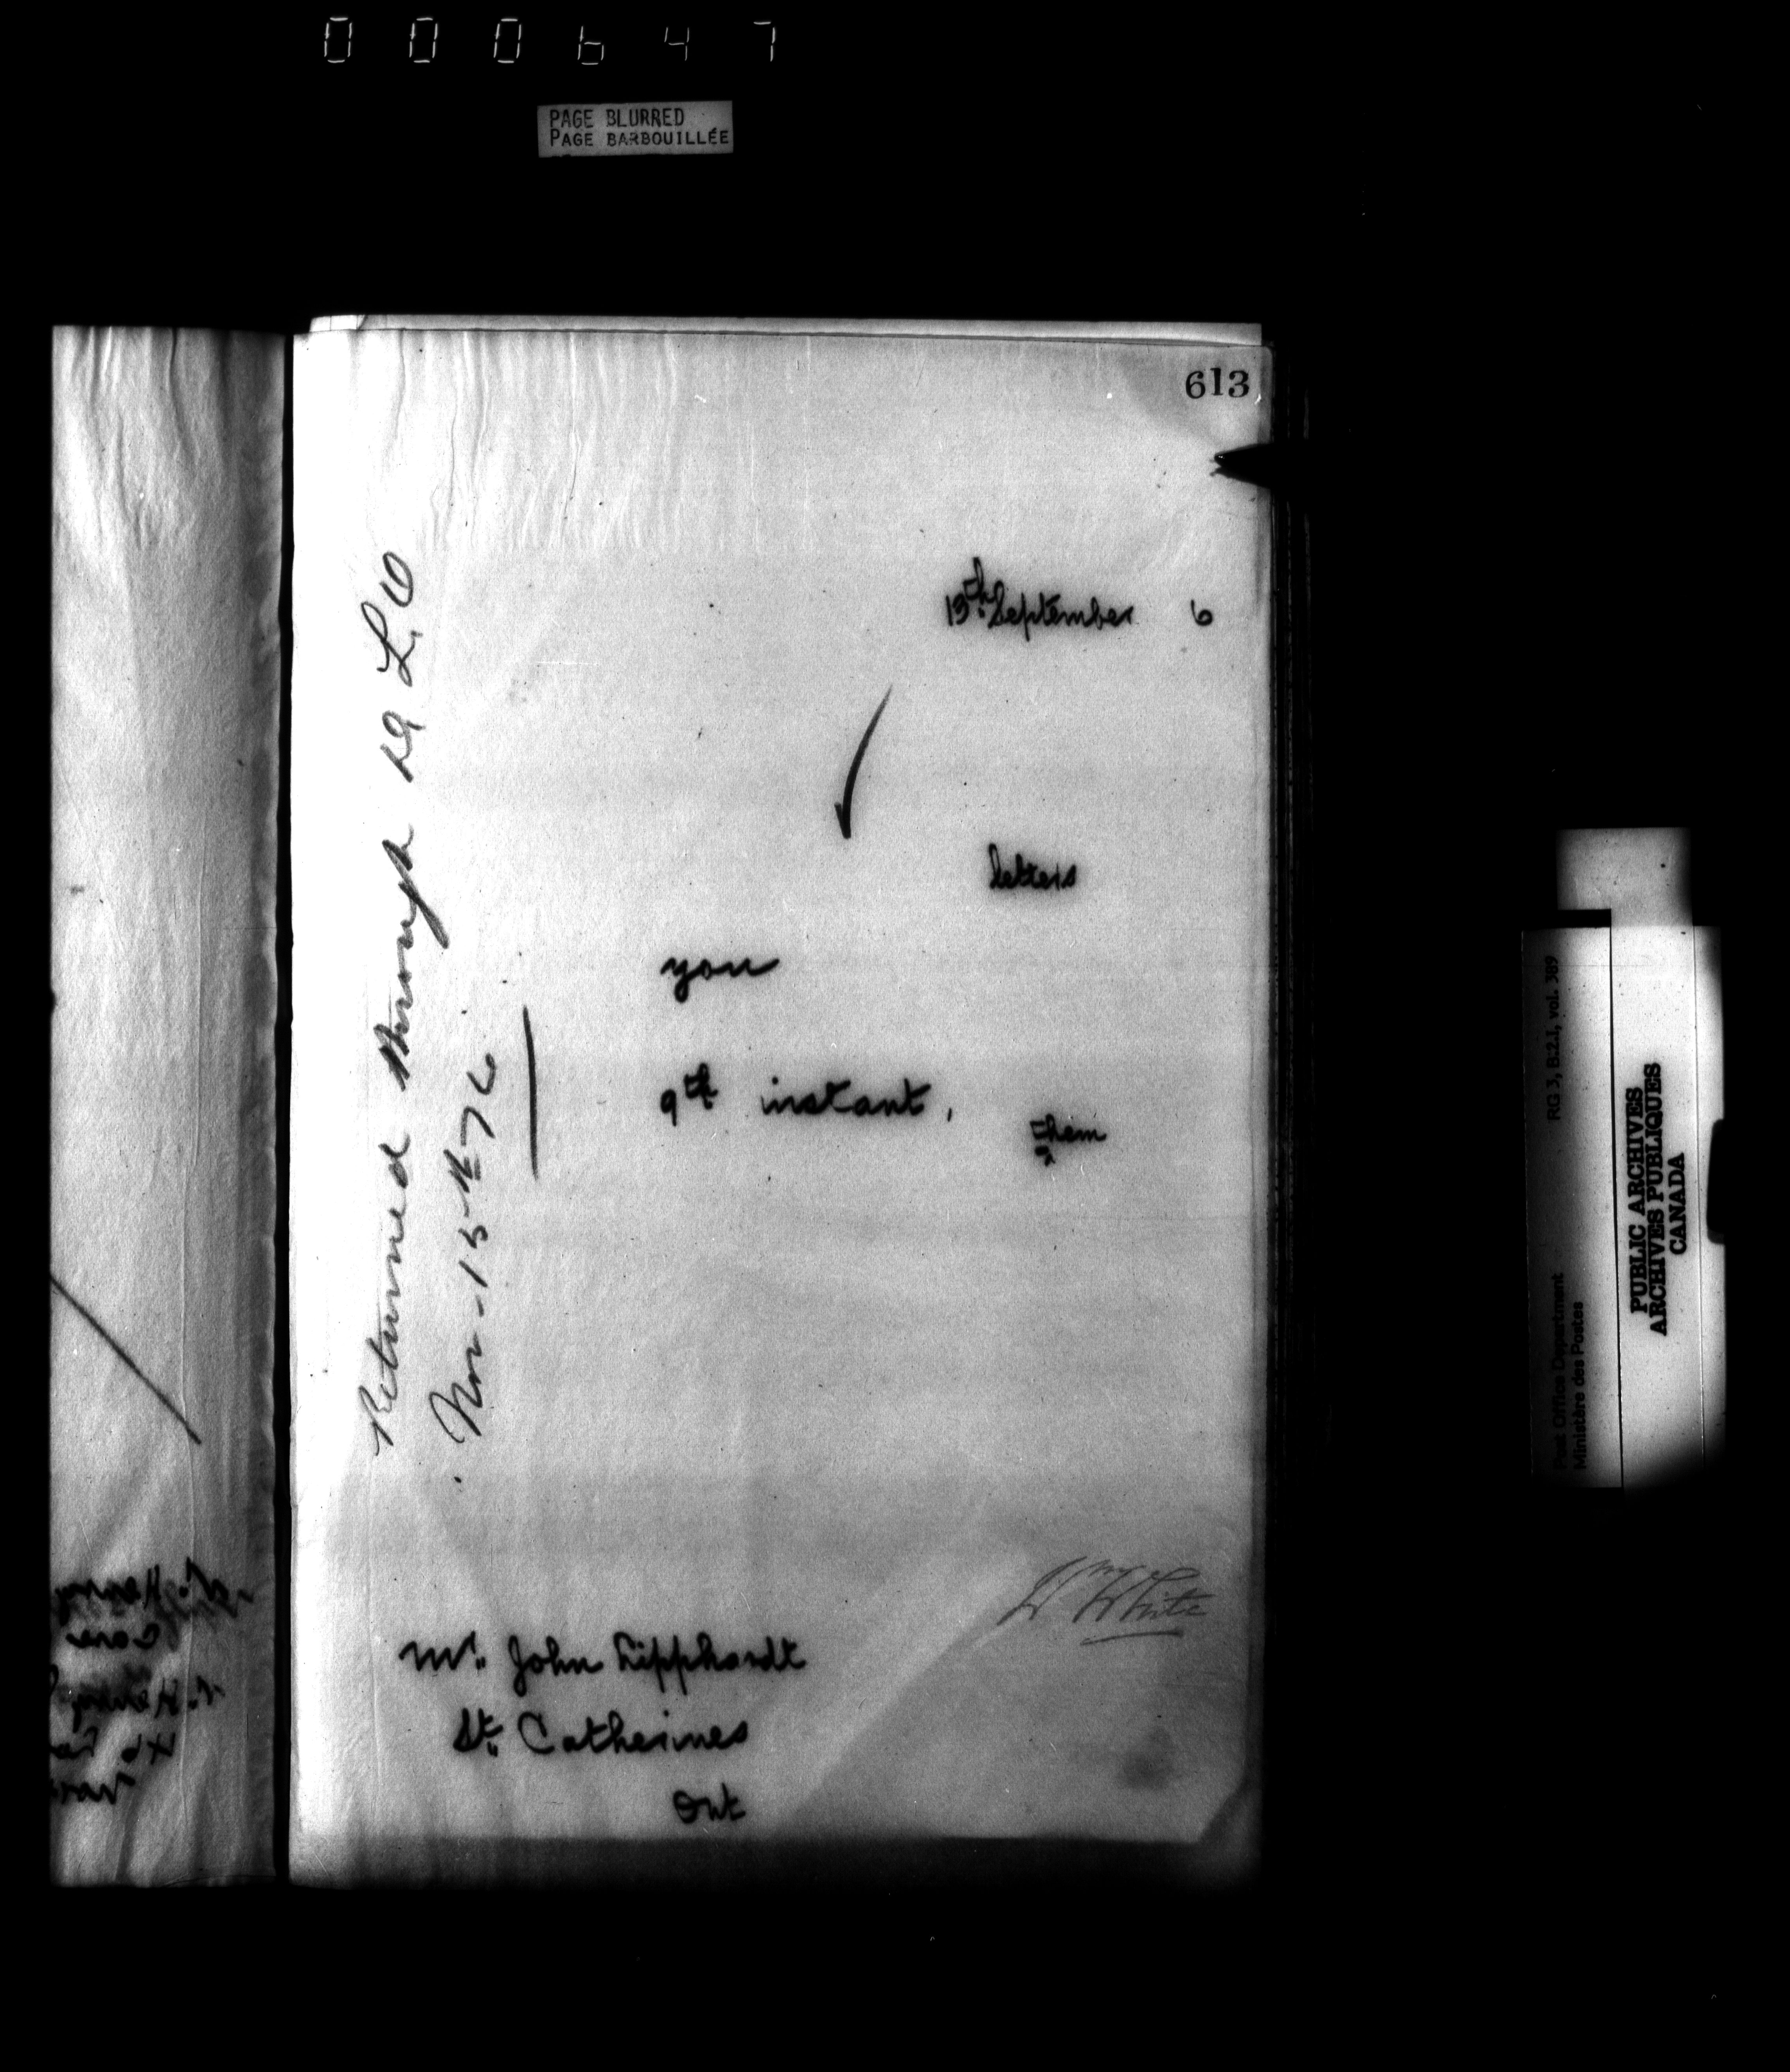 000647
PAGE BLURRED
PAGE BARBOUILLÉE
613
13th September 6
letters
you
9th instant,
them
Returned through D L O
Nov-15th 76
Wm White
Mr. John Lipphardt
St. Catherines
Ont
RG 3, B.2.1, vol. 389
Post Office Department
Ministère des Postes
PUBLIC ARCHIVES
ARCHIVES PUBLIQUES
CANADA